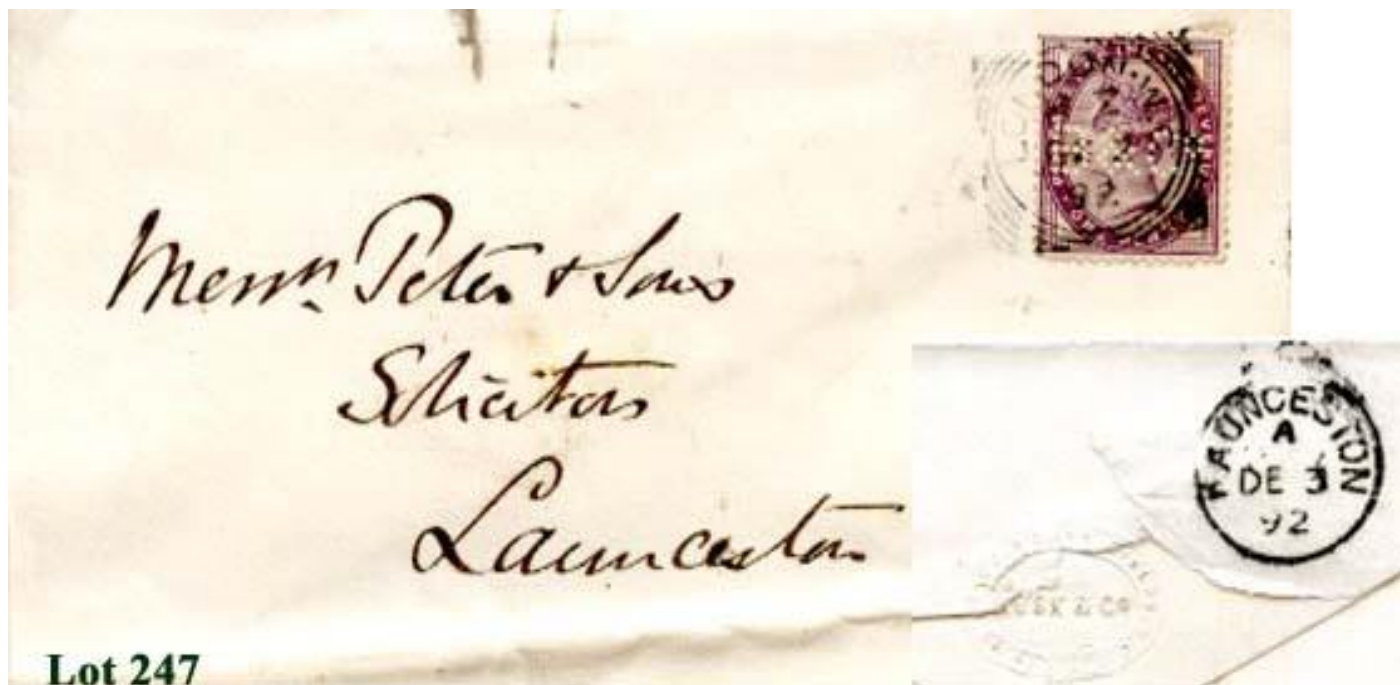 LONDON·W.C
Z
DE 2
92
Messrs Peter & Sons
Solicitors
Launceston
LAUNCESTON
A
DE 3
92
& Co
Lot 247